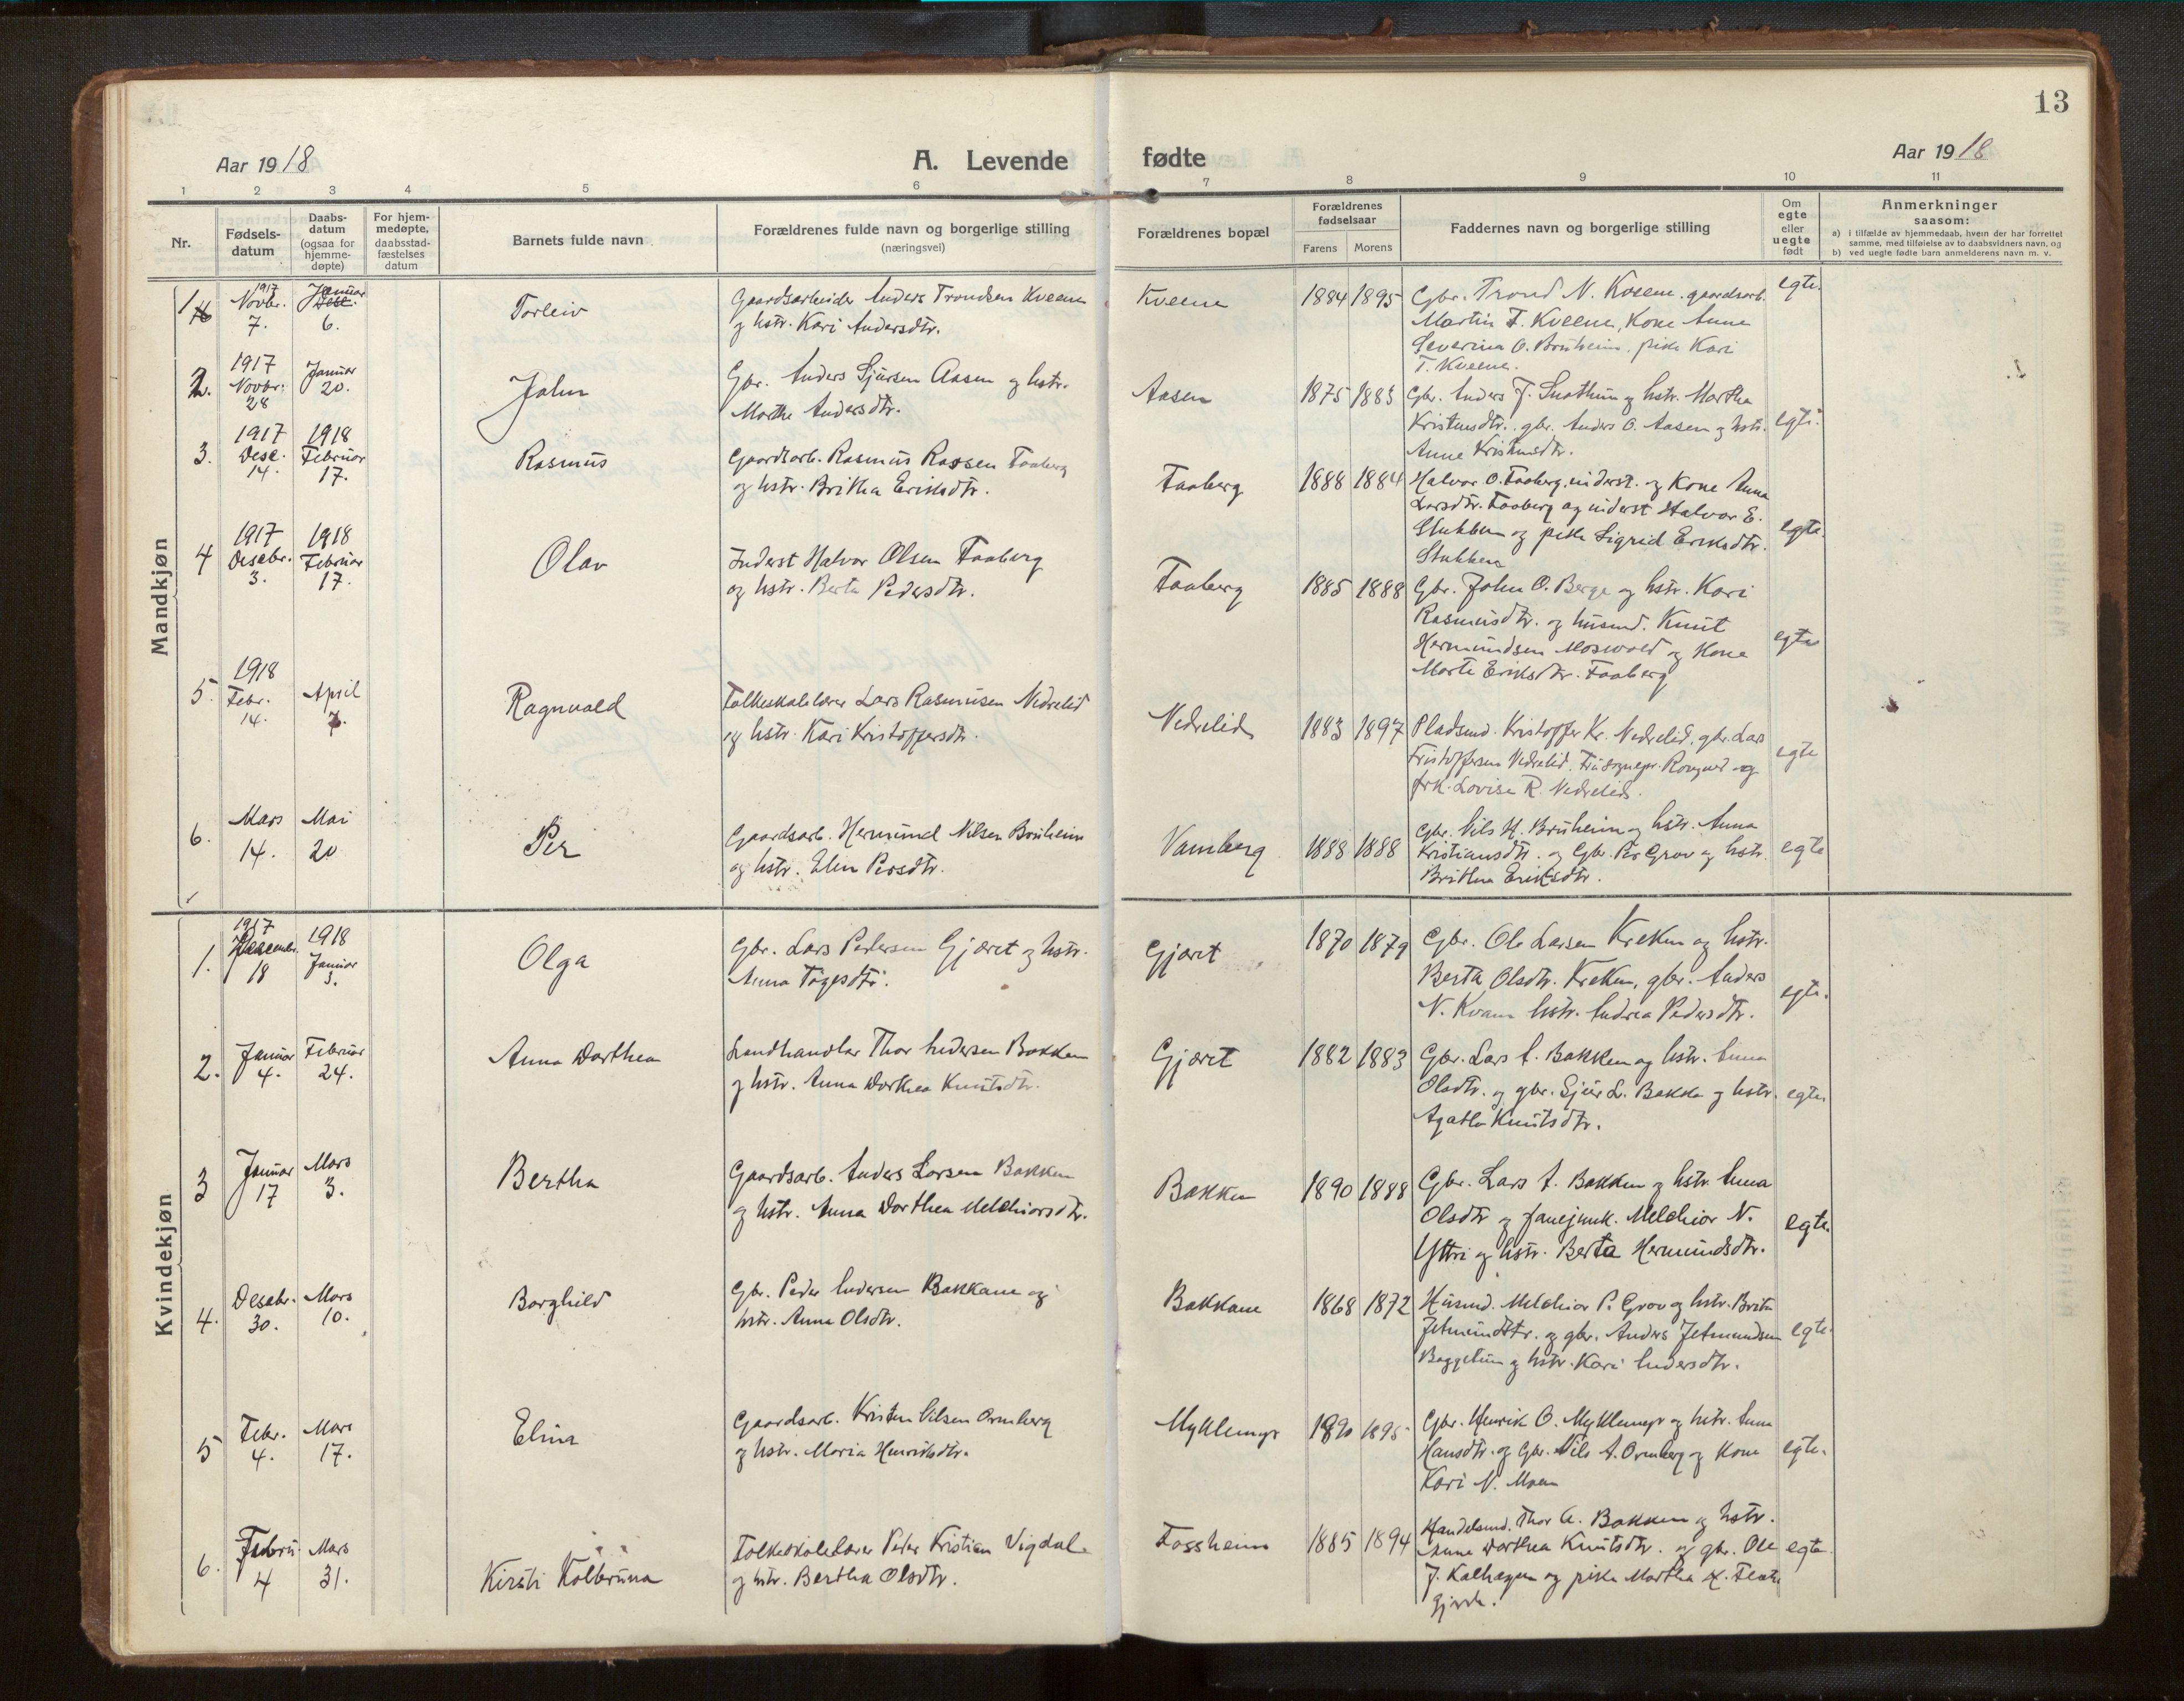 13
Aar 1918
A. Levende fødte
Aar 1918
1 2 3 4 5 6 7 8 9 10 11
Nr.
Fødsels-
datum
Daabs-
datum
(ogsaa for
hjemme-
døpte)
For hjem-
medøpte,
daabsstad-
fæstelses
datum
Barnets fulde navn
Forældrenes fulde navn og borgerlige stilling
(næringsvei)
Forældrenes bopæl
Forældrenes
fødselsaar
Farens Morens
Faddernes navn og borgerlige stilling
Om
egte
eller
uegte
født
Anmerkninger
saasom:
a) i tilfælde av hjemmedaab, hvem der har forrettet
samme, med tilføielse av to daabsvidners navn, og
b) ved uegte fødte barn anmelderens navn m. v.
Mandkjøn
1
1917
Novbr.
7.
Januar
6.
Torleiv
Gaardsarbeider Anders Trondsen Kveene
og hstr. Kari Andersdtr.
Kveene
1884 1895
Gbr. Trond N. Kveene, gaardsarb.
Martin T. Kveene, Kone Anne
Severina O. Bruheim, pike Kari
T. Kveene.
egte.
2.
1917
Novbr.
28
Januar
20.
John
Gbr. Anders Sjursen Aasen og hstr.
Marthe Andersdtr.
Aasen
1875 1883
Gbr. Anders J. Snothun og hstr. Martha
Kristensdtr., gbr. Anders O. Aasen og hstr.
Anne Kristensdtr.
egte.
3.
1917
Dese.
14.
1918
Februar
17.
Rasmus
Gaardsarb. Rasmus Rassen Faaberg
og hstr. Britha Eriksdtr.
Faaberg
1888 1884
Halvor O. Faaberg, inderst. og Kone Anna
Larsdtr. Faaberg og inderst Halvor E.
Stubben og pike Sigrid Eriksdtr.
Stubben
egte.
4
1917
Desebr.
3.
1918
Februar
17.
Olav
Inderst Halvor Olsen Faaberg
og hstr. Berta Pedersdtr.
Faaberg
1885 1888
Gbr. John O. Berge og hstr. Kari
Rasmusdtr. og husmd. Knut
Hermundsen Moswold og Kone
Marte Eriksdtr. Faaberg
egte
5.
1918
Febr.
14.
April
7.
Ragnvald
Folkeskolelærer Lars Rasmusen Nedrelid
og hstr. Kari Kristoffersdtr.
Nedrelid
1883 1897
Pladsmd. Kristoffer Kr. Nedrelid, gbr. Lars
Kristoffersen Nedrelid. og
frk. Lovise R. Nedrelid.
egte
6.
Mars
14.
Mai
20
Per
Gaardsarb. Hermund Nilsen Bruheim
og hstr. Elen Persdtr.
Vamberg
1888 1888
Gbr. Nils H. Bruheim og hstr. Anna
Kristiansdtr. og Gbr. Per Grov og hstr.
Britha Eriksdtr.
egte
Kvindekjøn
1.
1917
Desember
18
1918
Januar
3.
Olga
Gbr. Lars Pedersen Gjæret og hstr.
Anna Tøgesdtr.
Gjæret
1870 1879
Gbr. Ole Larsen Kreken og hstr.
Berta Olsdtr. Kreken, gbr. Anders
N. Kvam hstr. Andrea Pedersdtr.
egte.
2.
Januar
4.
Februar
24.
Anna Dorthea
Landhandlar Thor Andersen Bakken
og hstr. Anna Dorthea Knutsdtr.
Gjæret
1882 1883
Gbr. Lars A. Bakken og hstr. Anna
Olsdtr. og gbr. Sjur L. Bakken og hstr.
Agatha Knutsdtr.
egte
3
Januar
17
Mars
3.
Bertha
Gaardsarb. Anders Larsen Bakken
og hstr. Anna Dorthea Melchiorsdtr.
Bakken
1890 1888
Gbr. Lars A. Bakken og hstr. Anna
Olsdtr og Melchior N.
Yttri og hstr. Berta Hermundsdtr.
egte.
4.
Desebr.
30.
Mars
10.
Borghild
Gbr. Peder Andersen Bakkane og
hstr. Anna Olsdtr.
Bakkane
1868 1872
Husmd. Melchior P. Grov og hstr. Brita
Jetmundsdtr. og gbr. Anders Jetmundsen
Baggetun og hstr. Kari Andersdtr.
egte.
5
Febr.
4.
Mars
17.
Elina
Gaardsarb. Kristen Nilsen Ormberg
og hstr. Maria Henriksdtr.
Myklemyr
1890 1895
Gbr. Henrik O. Myklemyr og hstr. Anna
Hansdtr. og Gbr. Nils A. Ormberg og Kone
Kari N. Moen
egte.
6.
Febru.
4
Mars
31.
Kirsti Kolbruna
Folkeskolelærer Peder Kristian Vigdal
og hstr. Bertha Olsdtr.
Fossheim
1885 1894
Handelsmd. Thor A. Bakken og hstr.
Anne Dorthea Knutsdtr. og gbr. Ole
J. Kalhagen og pike Martha
Gjerde.
egte.